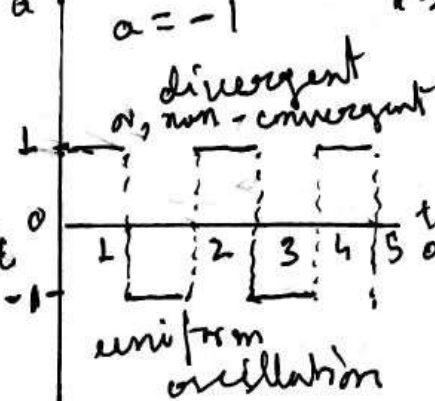 a = -1
divergent
or, non-convergent
1
0 1 2 3 4 5 t
-1
uniform
oscillation